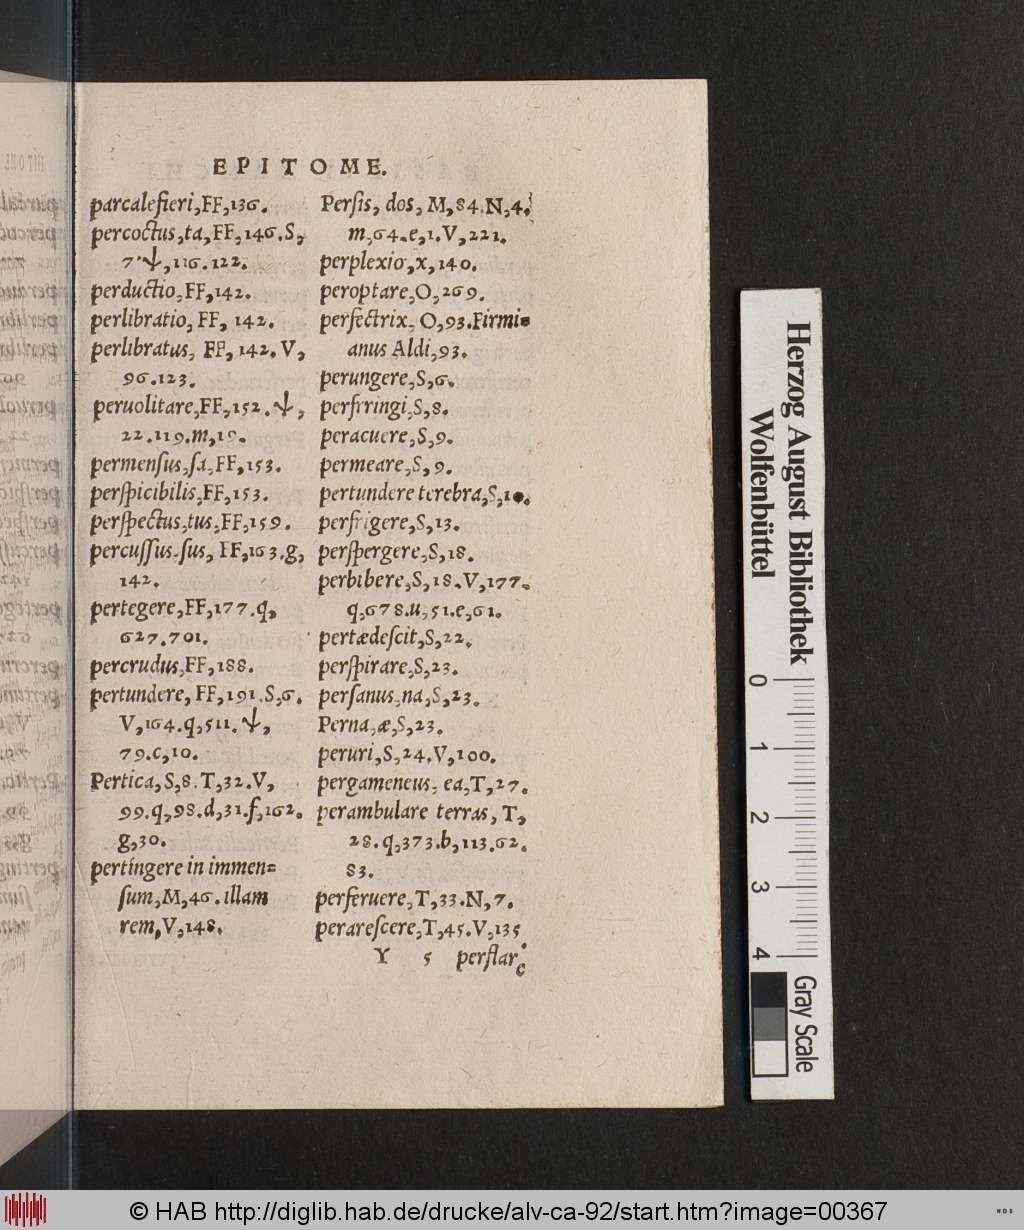 EPITOME.
parcalefieri,FF,136.
percoctus,ta,FF,146.S,
7.Ψ,116.122.
perductio,FF,142.
perlibratio, FF, 142.
perlibratus, FF, 142.V,
96.123.
peruolitare,FF,152.Ψ,
22.119.m,19.
permensus,sa,FF,153.
perspicibilis,FF,153.
perspectus,tus,FF,159.
percussus,sus, FF,163.g,
142.
pertegere,FF,177.q,
627.701.
percrudus,FF,188.
pertundere, FF,191.S,6.
V,164.q,511.Ψ,
79.c,10.
Pertica,S,8.T,32.V,
99.q,98.d,31.f,162.
g,30.
pertingere in immen=
sum,M,46.illam
rem,V,148.
Persis, dos, M,84.N,4.
m,64.e,1.V,221.
perplexio,x,140.
peroptare,O,269.
perfectrix, O,93.Firmi=
anus Aldi,93.
perungere,S,6.
perfrringi,S,8.
peracuere,S,9.
permeare,S,9.
pertundere terebra,S,10.
perfrigere,S,13.
perspergere,S,18.
perbibere,S,18.V,177.
q,678.u,51.e,61.
pertædescit,S,22.
perspirare,S,23.
persanus,na,S,23.
Perna,æ,S,23.
peruri,S,24.V,100.
pergameneus, ea,T,27.
perambulare terras, T,
28.q,373.b,113.62.
83.
perferuere,T,33.N,7.
perarescere,T,45.V,135
Y 5 perflare
Herzog August Bibliothek
Wolfenbüttel
0 1 2 3 4
Gray Scale
© HAB http://diglib.hab.de/drucke/alv-ca-92/start.htm?image=00367